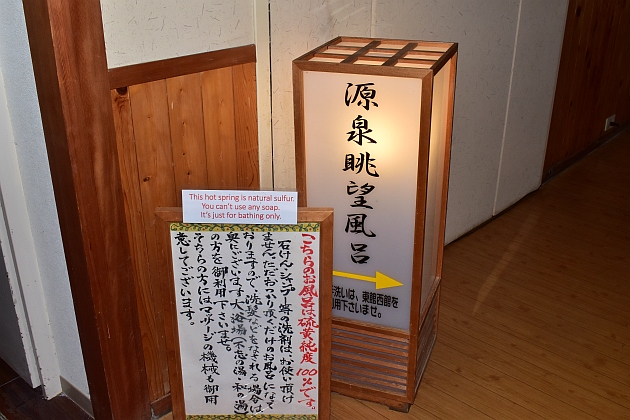 源泉眺望風呂
手洗いは、東館西館を
利用下さいませ。
This hot spring is natural sulfur.
You can't use any soap.
It's just for bathing only.
こちらのお風呂は硫黄純度100%です。
石けん・シャンプー等の洗剤はお使い頂け
ませんただおつかり頂くだけのお風呂になって
おりますので、洗髪などをなされる場合は
奥にございます大浴場(不忘の湯・和の湯)
の方を御利用下さいませ。
そちらの方にはマッサージの機械も御用
意してございます。